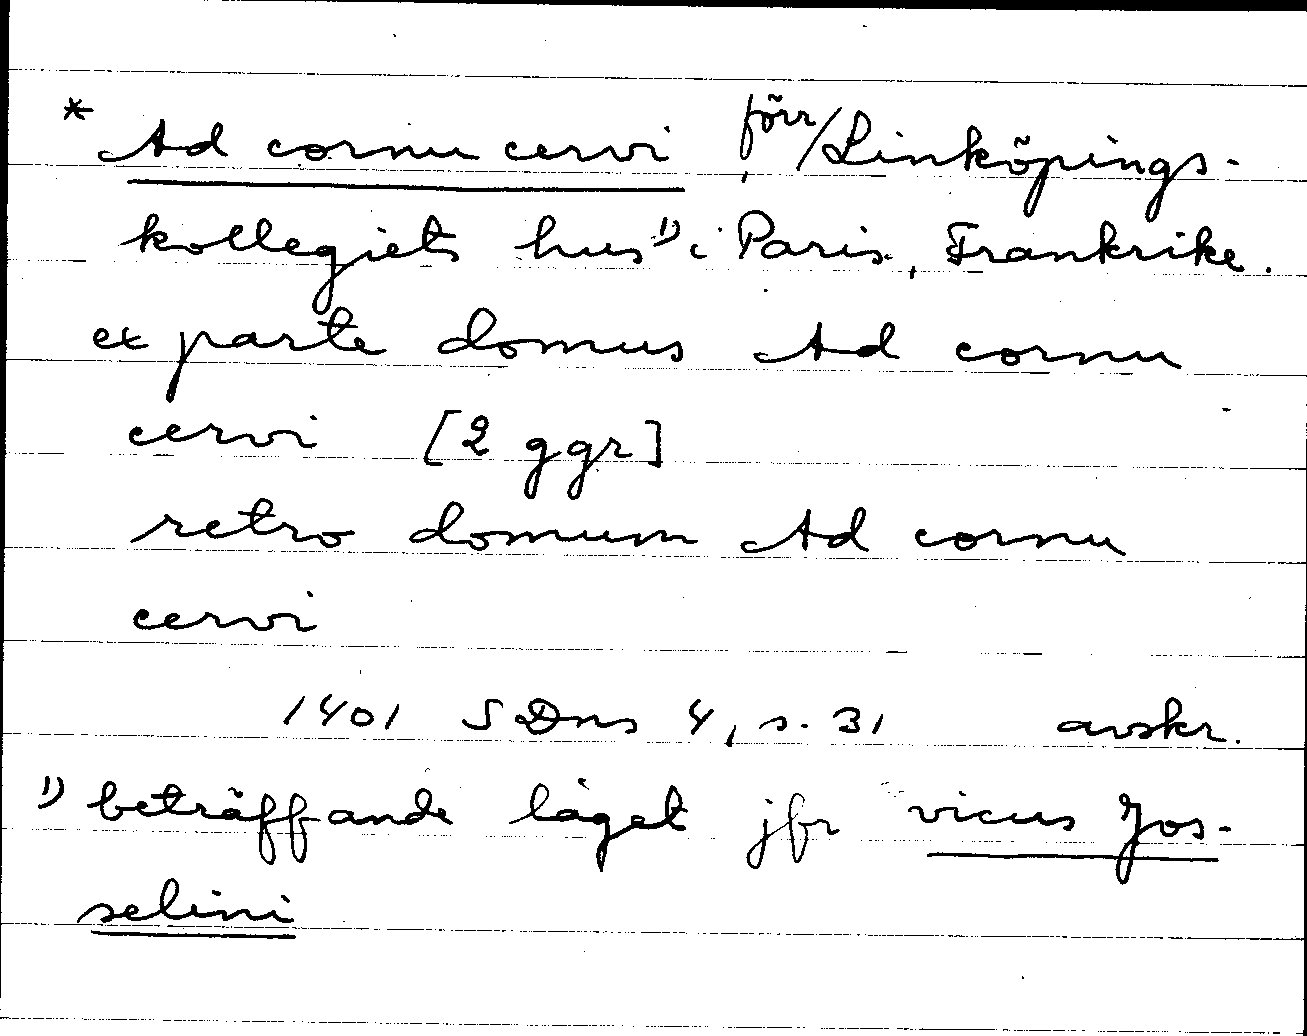 * Ad cornu cervi, förr/Linköpings-
kollegiets hus¹⁾ i Paris, Frankrike.
ex parte domus Ad cornu
cervi [2 ggr]
retro domum Ad cornu
cervi
1401 SDns 4, s. 31 avskr.
¹⁾ beträffande läget jfr vicus Jos-
selini